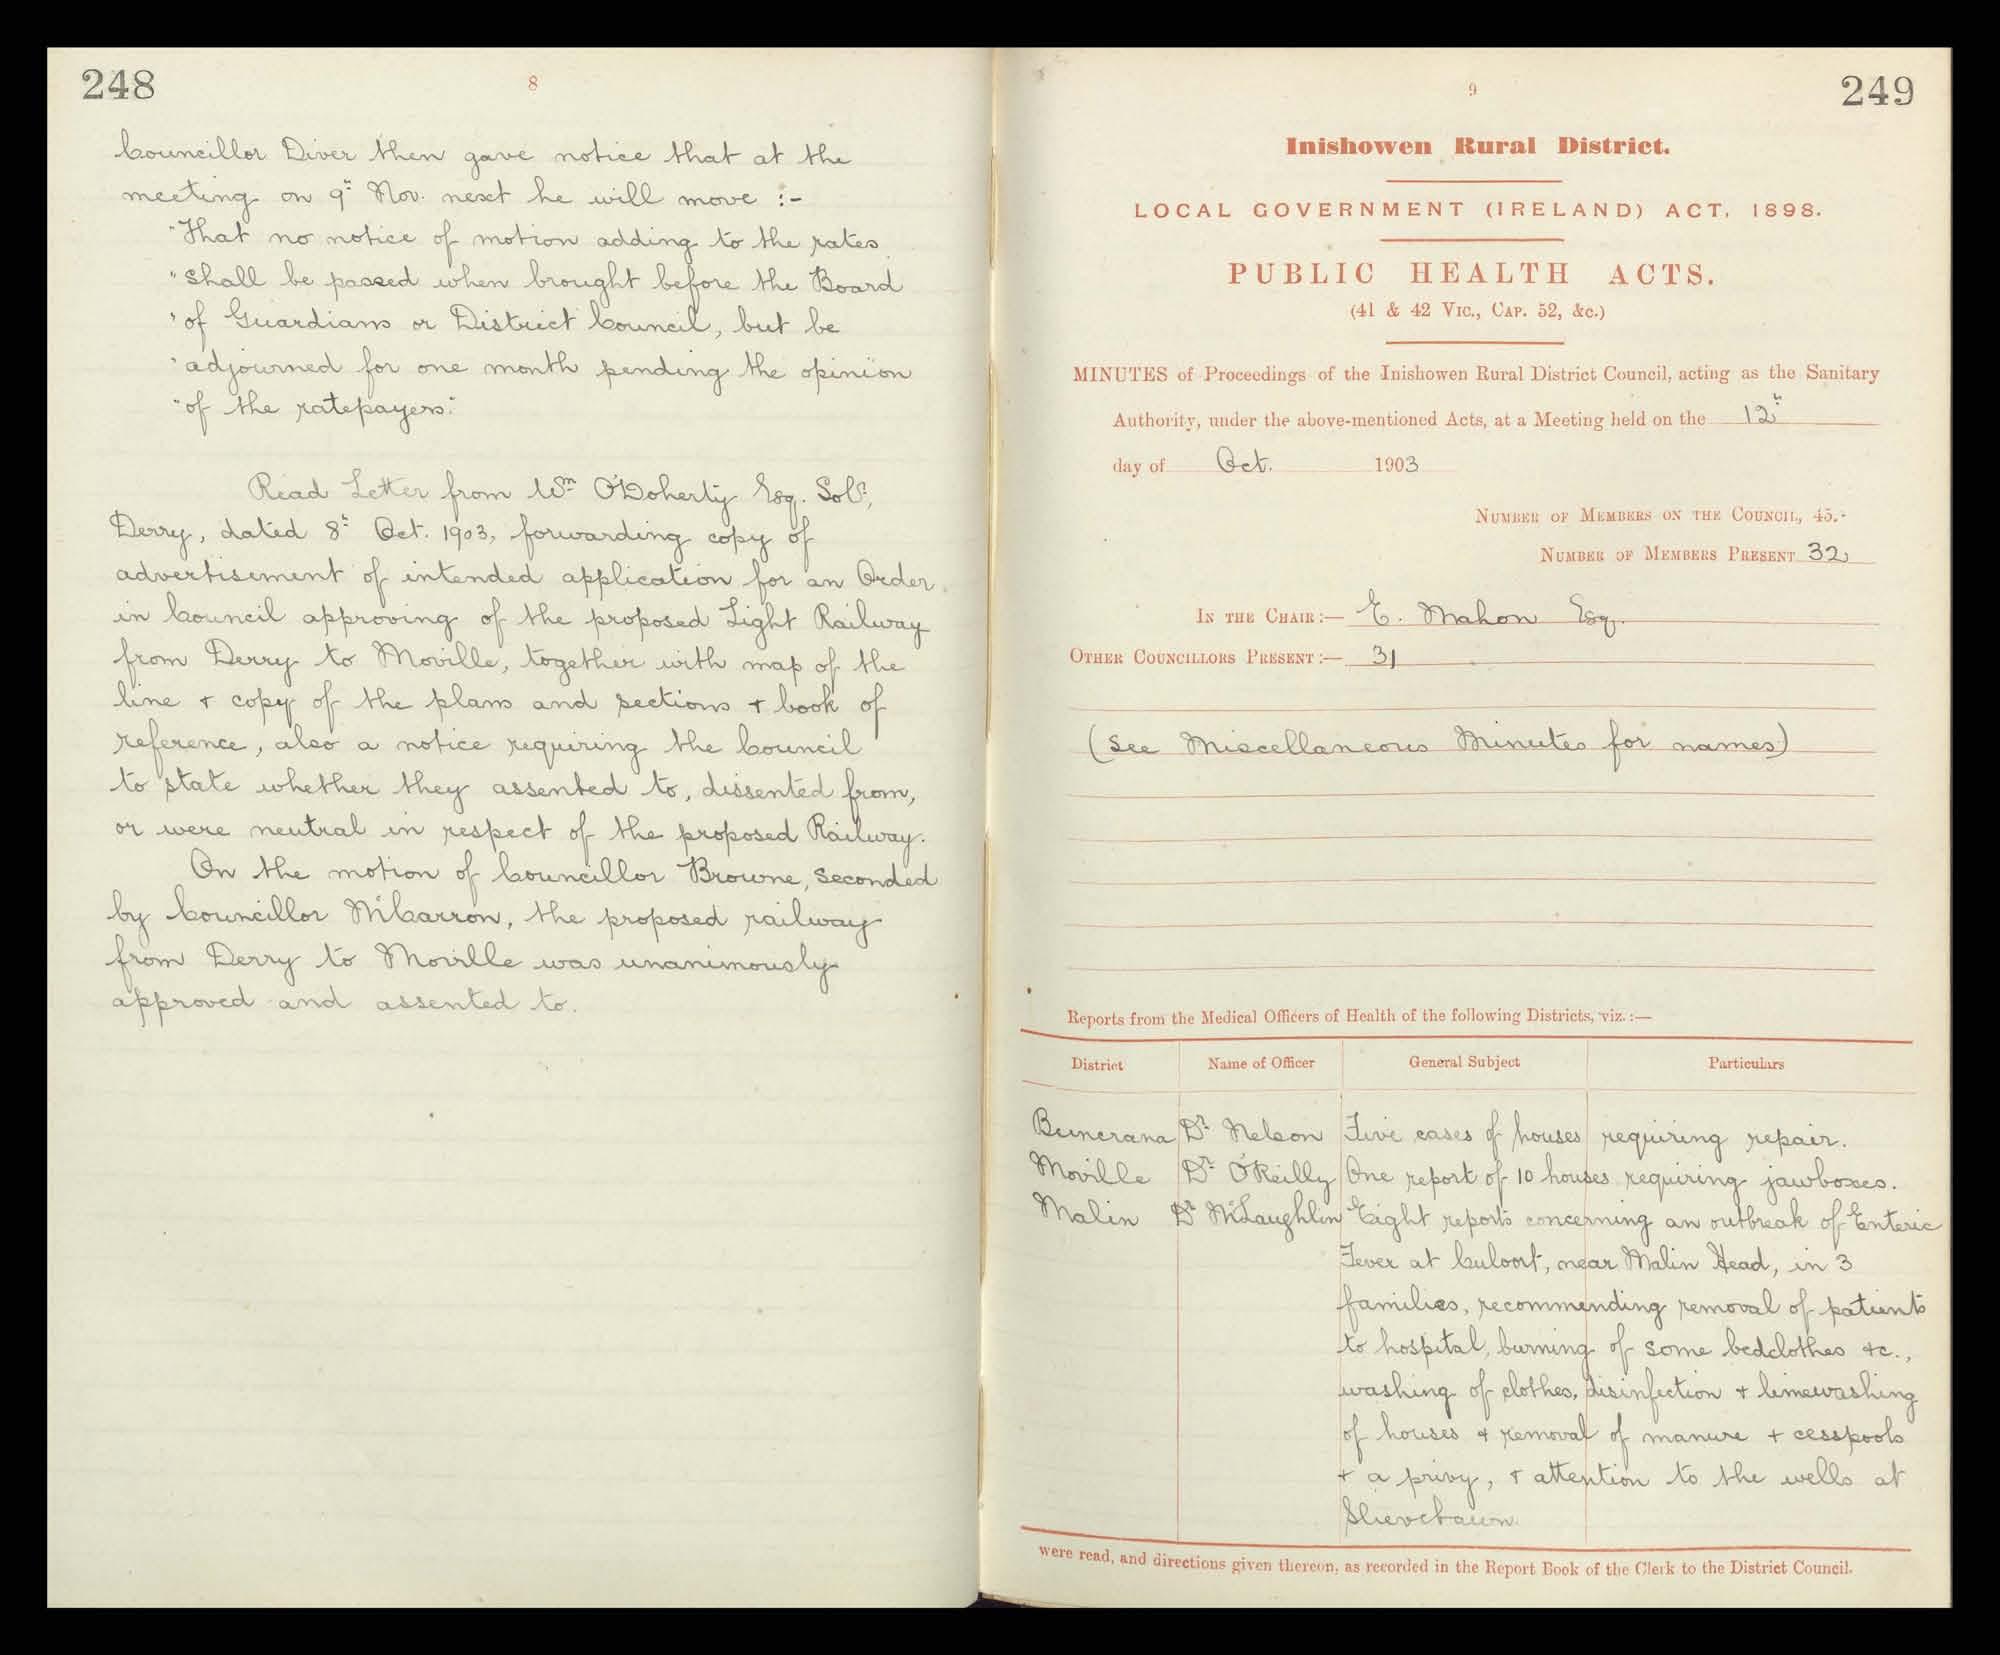 248
8
Councillor Diver then gave notice that at the
meeting on 9th Nov. next he will move :-
"That no notice of motion adding to the rates
"shall be passed when brought before the Board
"of Guardians or District Council, but be
"adjourned for one month pending the opinion
"of the ratepayers."
Read Letter from Wm O'Doherty Esq. Solr,
Derry, dated 8th Oct. 1903, forwarding copy of
advertisement of intended application for an Order
in Council approving of the proposed Light Railway
from Derry to Moville, together with map of the
line + copy of the plans and sections + book of
reference, also a notice requiring the Council
to state whether they assented to, dissented from,
or were neutral in respect of the proposed Railway.
On the motion of Councillor Browne, seconded
by Councillor McCarron, the proposed railway
from Derry to Moville was unanimously
approved and assented to.
9
249
Inishowen Rural District.
LOCAL GOVERNMENT (IRELAND) ACT, 1898.
PUBLIC HEALTH ACTS.
(41 & 42 VIC., CAP. 52, &c.)
MINUTES of Proceedings of the Inishowen Rural District Council, acting as the Sanitary
Authority, under the above-mentioned Acts, at a Meeting held on the 12th
day of Oct. 1903
NUMBER OF MEMBERS ON THE COUNCIL, 45.
NUMBER OF MEMBERS PRESENT 32
IN THE CHAIR:— E. Mahon Esq.
OTHER COUNCILLORS PRESENT:— 31
(See Miscellaneous Minutes for names)
Reports from the Medical Officers of Health of the following Districts, viz.:—
District Name of Officer General Subject Particulars
Buncrana Dr Nelson Five cases of houses requiring repair.
Moville Dr O'Reilly One report of 10 houses requiring jawboxes.
Malin Dr McLaughlin Eight reports concerning an outbreak of Enteric
Fever at Culoort, near Malin Head, in 3
families, recommending removal of patients
to hospital, burning of some bedclothes &c.,
washing of clothes, disinfection + limewashing
of houses + removal of manure + cesspools
+ a privy, + attention to the wells at
were read, and directions given thereon, as recorded in the Report Book of the Clerk to the District Council.